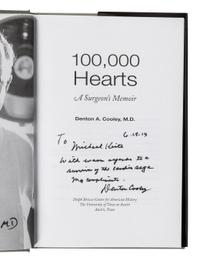 100,000
Hearts
A Surgeon's Memoir
Denton A. Cooley, M.D.
6-19-13
To
Michael
With warm regards to a
survivor of the
My compliments.
Denton Cooley
Dolph Briscoe Center for American History
The University of Texas at Austin
Austin, Texas
M.D.